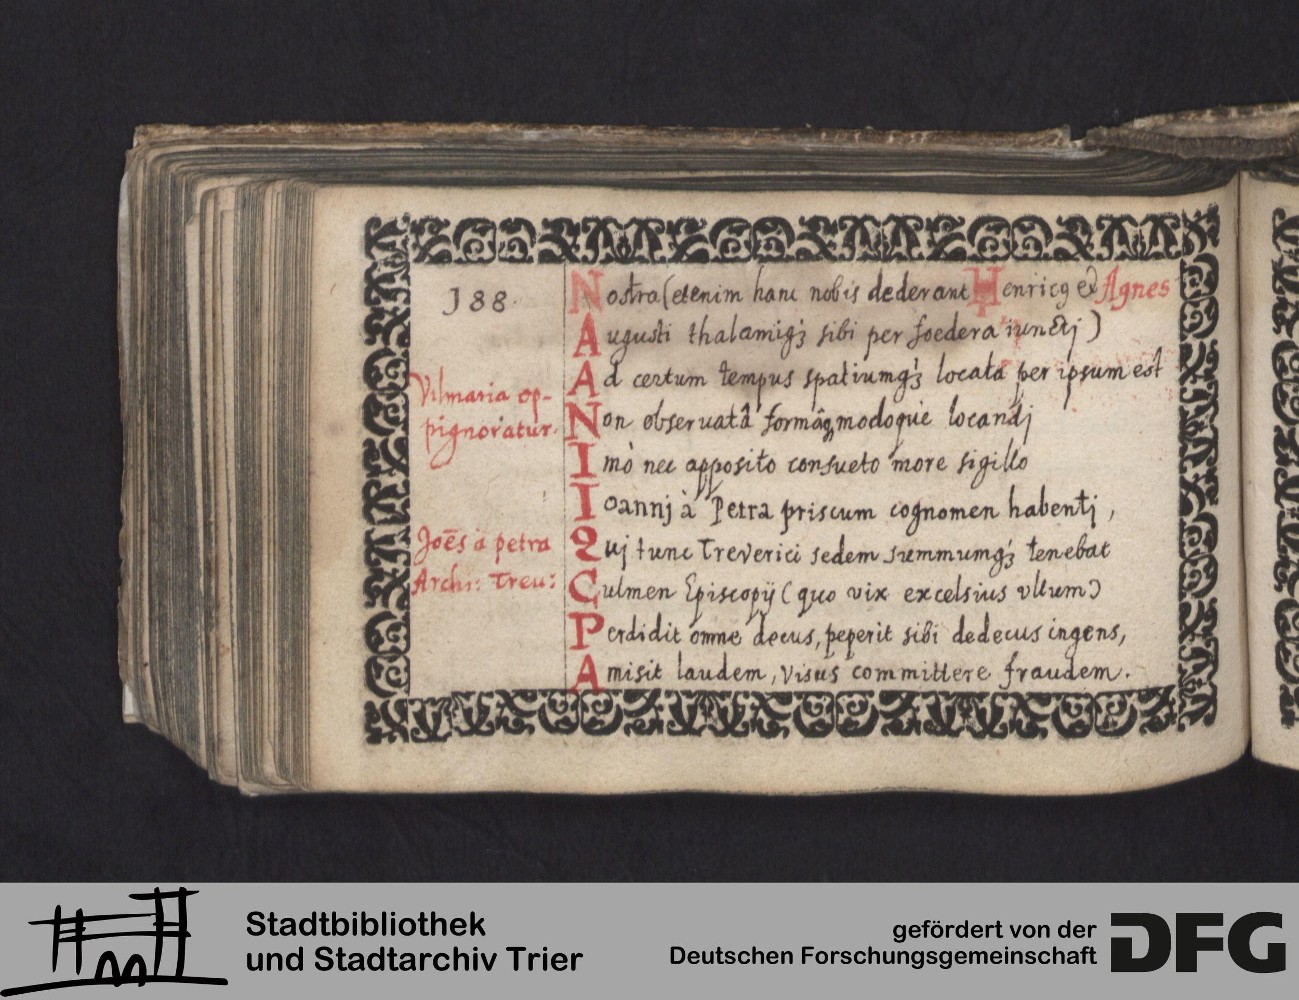 188.
Nostra (etenim hanc nobis dederant Henricq et Agnes
Augusti thalamiq; sibi per foedera iunctj)
Ad certum tempus spatiumq; locata per ipsum est
Vilmaria op-
pignoratur.
Non obseruatâ formâq, modoque locandj
Imò nec apposito consueto more sigillo
Ioannj à Petra priscum cognomen habentj,
Joēs à petra
Archi: Treu:
Quj tunc Treverici sedem summumq; tenebat
Culmen Episcopij (quo vix excelsius vllum)
Perdidit omne decus, peperit sibi dedecus ingens,
Amisit laudem, visus committere fraudem.
Stadtbibliothek
und Stadtarchiv Trier
gefördert von der
Deutschen Forschungsgemeinschaft
DFG